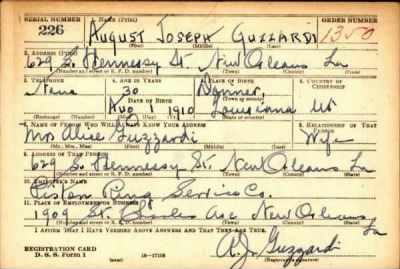 SERIAL NUMBER 1. NAME (Print) ORDER NUMBER
226 AUGUST JOSEPH GUZZARDI 1350
(First) (Middle) (Last)
2. ADDRESS (Print)
629 So. Hennessy St. New Orleans La
(Number and street or R. F. D. number) (Town) (County) (State)
3. TELEPHONE 4. AGE IN YEARS 5. PLACE OF BIRTH 6. COUNTRY OF CITIZENSHIP
None 30 Donner,
DATE OF BIRTH (Town or county)
Aug 1 1910 Louisiana US
(Exchange) (Number) (Mo.) (Day) (Yr.) (State or country)
7. NAME OF PERSON WHO WILL ALWAYS KNOW YOUR ADDRESS 8. RELATIONSHIP OF THAT PERSON
Mrs Alice Guzzardi Wife
(Mr., Mrs., Miss) (First) (Middle) (Last)
9. ADDRESS OF THAT PERSON
629 So. Hennessy St. New Orleans La
(Number and street or R. F. D. number) (Town) (County) (State)
10. EMPLOYER'S NAME
Piston Ring Service Co.
11. PLACE OF EMPLOYMENT OR BUSINESS
1909 St. Charles Ave New Orleans La
(Number and street or R. F. D. number) (Town) (County) (State)
I AFFIRM THAT I HAVE VERIFIED ABOVE ANSWERS AND THAT THEY ARE TRUE.
REGISTRATION CARD
D. S. S. Form 1 16-17105 A.J. Guzzardi
(Registrant's signature)